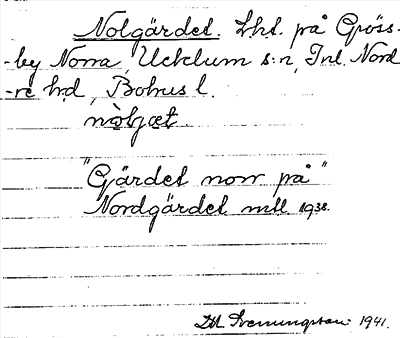 Nolgärdet. Lht. på Gröss-
-by Norra, Ucklum s:n, Inl. Nord
-re hd, Bohus l.
nòljæt.
"Gjärdet norr på"
Nordgärdet mtl. 1938.
1941.